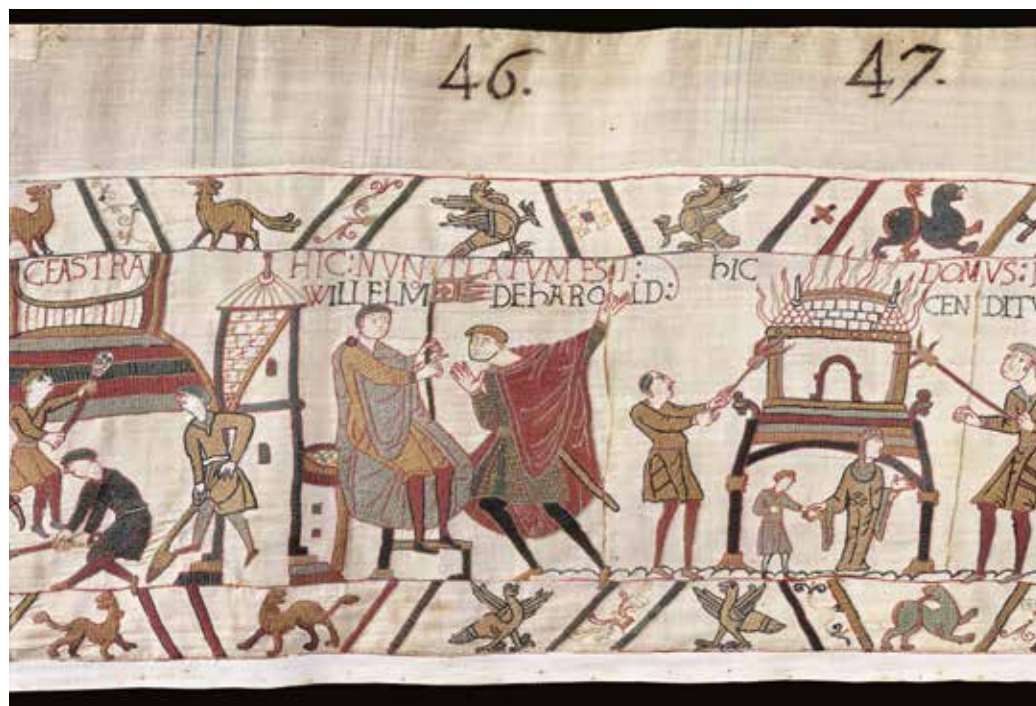 46.
47.
CEASTRA
HIC: NVNTIATVM EST:
WILLELM DE hAROLD:
hIC
DOMVS:
CENDIT